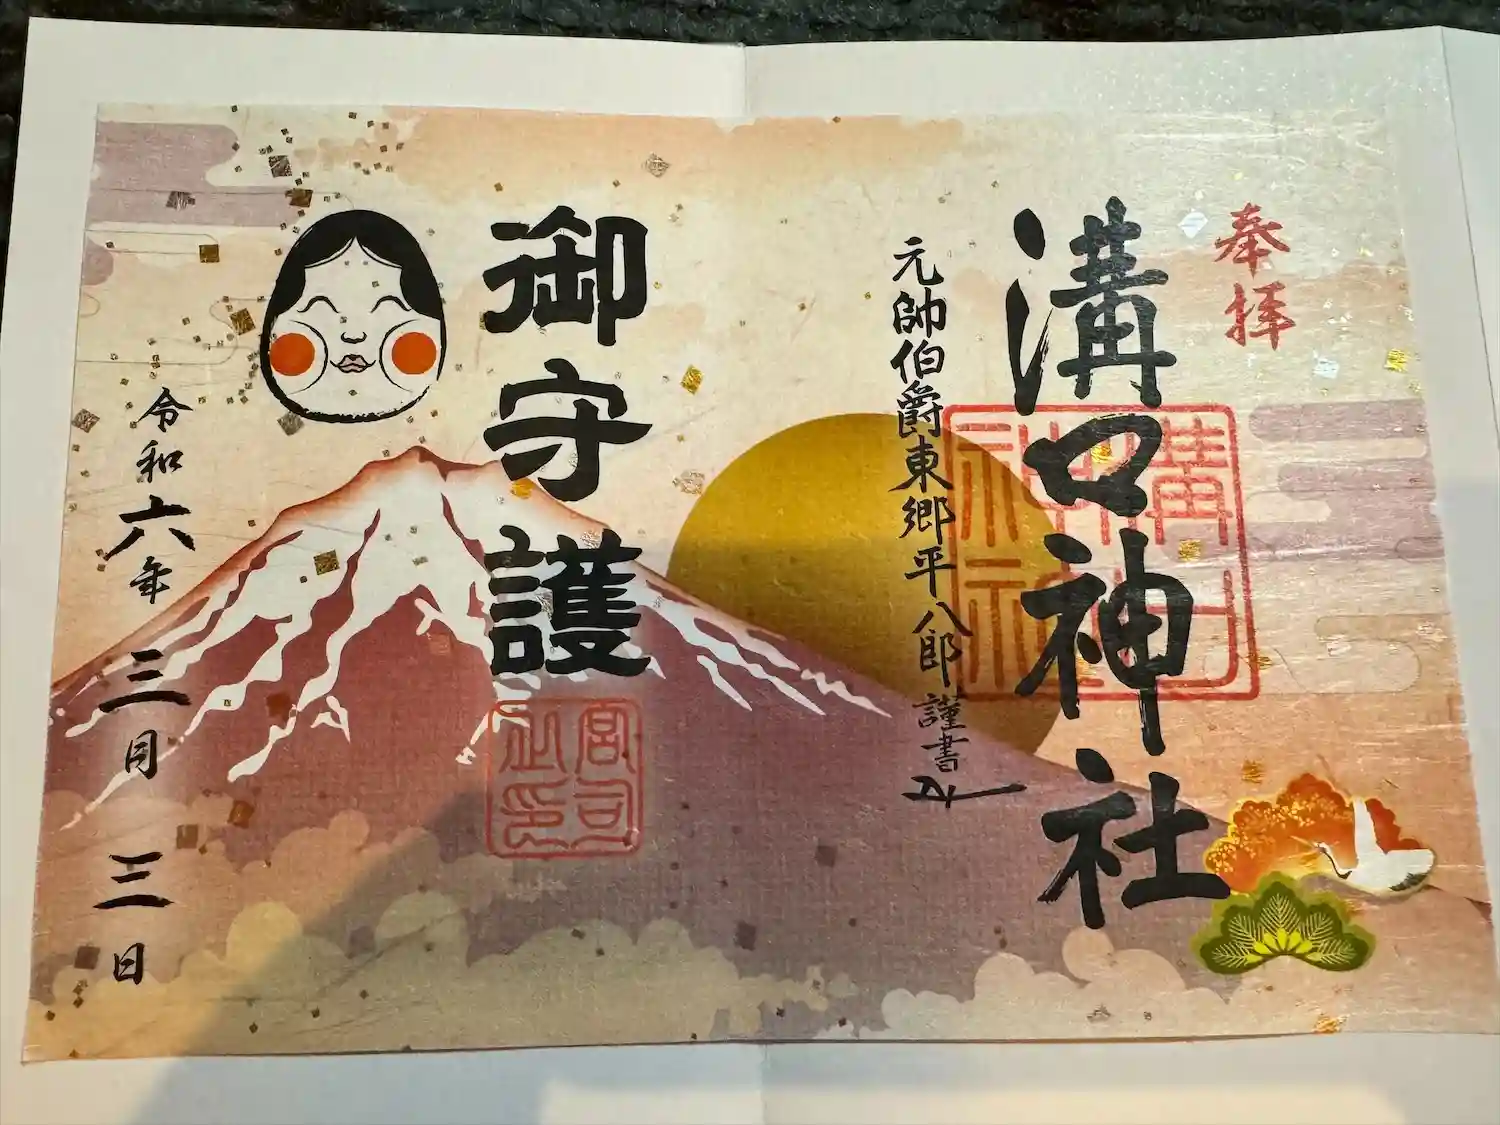 奉拝
溝口神社
元帥伯爵東郷平八郎謹書
御守護
宮司之印
令和六年三月三日